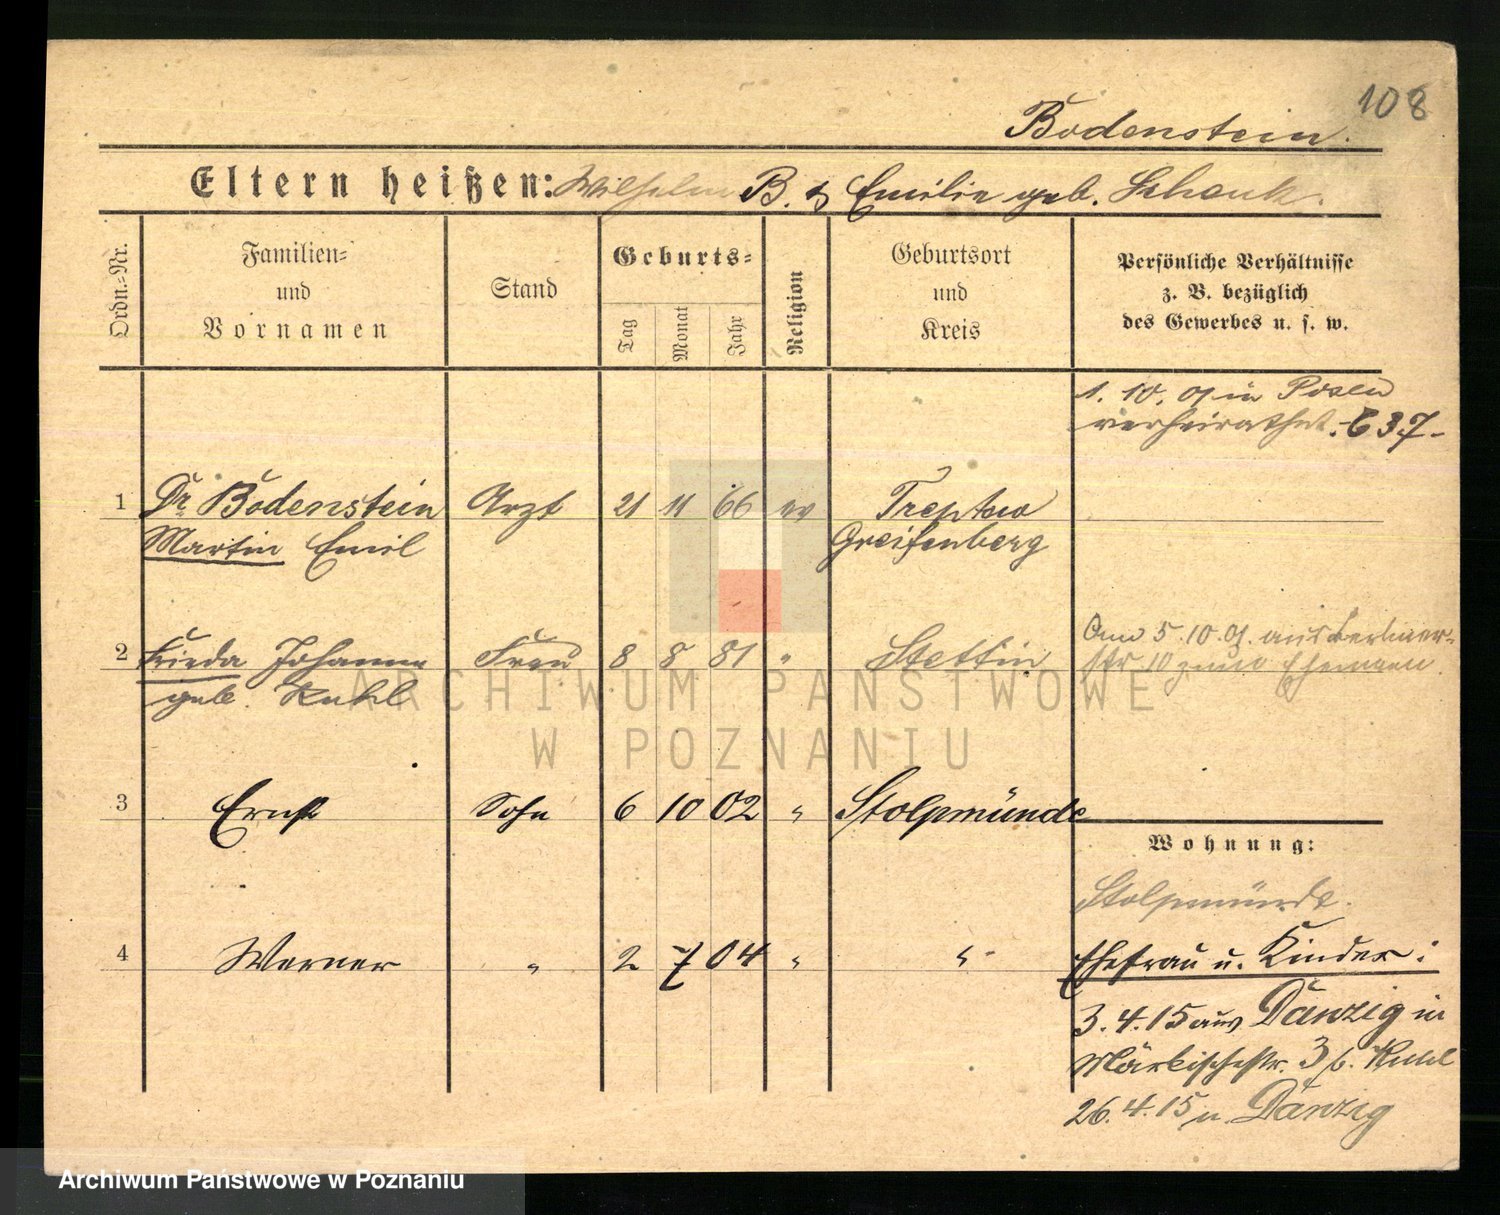 108
Bodenstein.
Eltern heißen: Wilhelm B. & Emilie geb. Schenk.
Ordn.=Nr.
Familien=
und
Vornamen
Stand
Geburts=
Tag
Monat
Jahr
Religion
Geburtsort
und
Kreis
Persönliche Verhältnisse
z. B. bezüglich
des Gewerbes u. s. w.
1. 10. 01 in Posen
verheirathet.
1 Dr Bodenstein Arzt 21 11 66 ev Treptow
Martin Emil Greifenberg
2 Frieda Johanna Frau 8 8 81 " Stettin
geb.
Am 5.10.01. aus Berliner-
str. 10 zum Ehemann.
3 Ernst Sohn 6 10 02 " Stolpmünde
Wohnung:
Stolpmünde.
4 Werner " 2 7 04 " "
Ehefrau u. Kinder:
3.4.15 aus Danzig in
Märkischestr. 3 b.
26.4.15 n. Danzig
ARCHIWUM PAŃSTWOWE
W POZNANIU
Archiwum Państwowe w Poznaniu